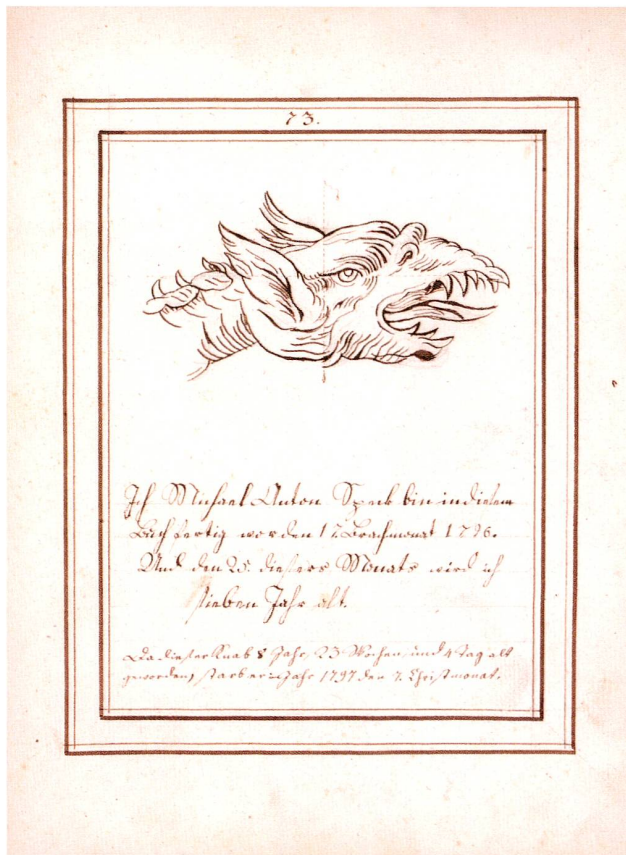 73.
Ich Michael Anton Speck bin in diesem
Buch fertig worden Brachmonat 1796.
Und den 25. diesers Monats wird ich
sieben Jahr alt.
Da dieser Knab 8 Jahr, 23 Wochen, und 4 Tag alt
geworden, starb er im Jahr 1797 den 7. Christmonat.